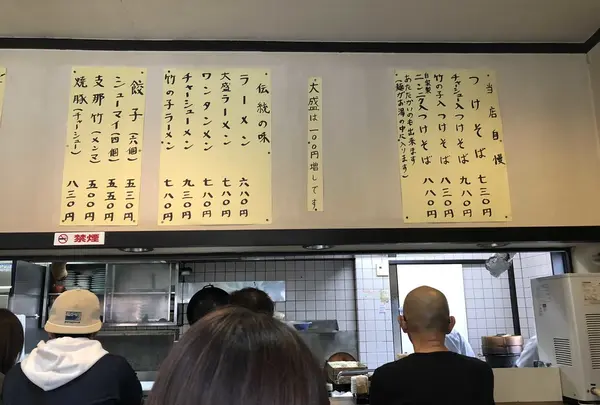 当店自慢
つけそば 七三〇円
チャシュー入つけそば 九八〇円
竹の子入つけそば 八三〇円
自家製
ニンニク入つけそば 八八〇円
あたたかいのも出来ます
(麺がお湯の中に入ります)
大盛は一〇〇円増しです
伝統の味
ラーメン 六八〇円
大盛ラーメン 七八〇円
ワンタンメン 七八〇円
チャーシューメン 九三〇円
竹の子ラーメン 七八〇円
餃子(六個) 五三〇円
シューマイ(四個) 五五〇円
支那竹(メンマ) 五〇〇円
焼豚(チャーシュー) 八三〇円
禁煙